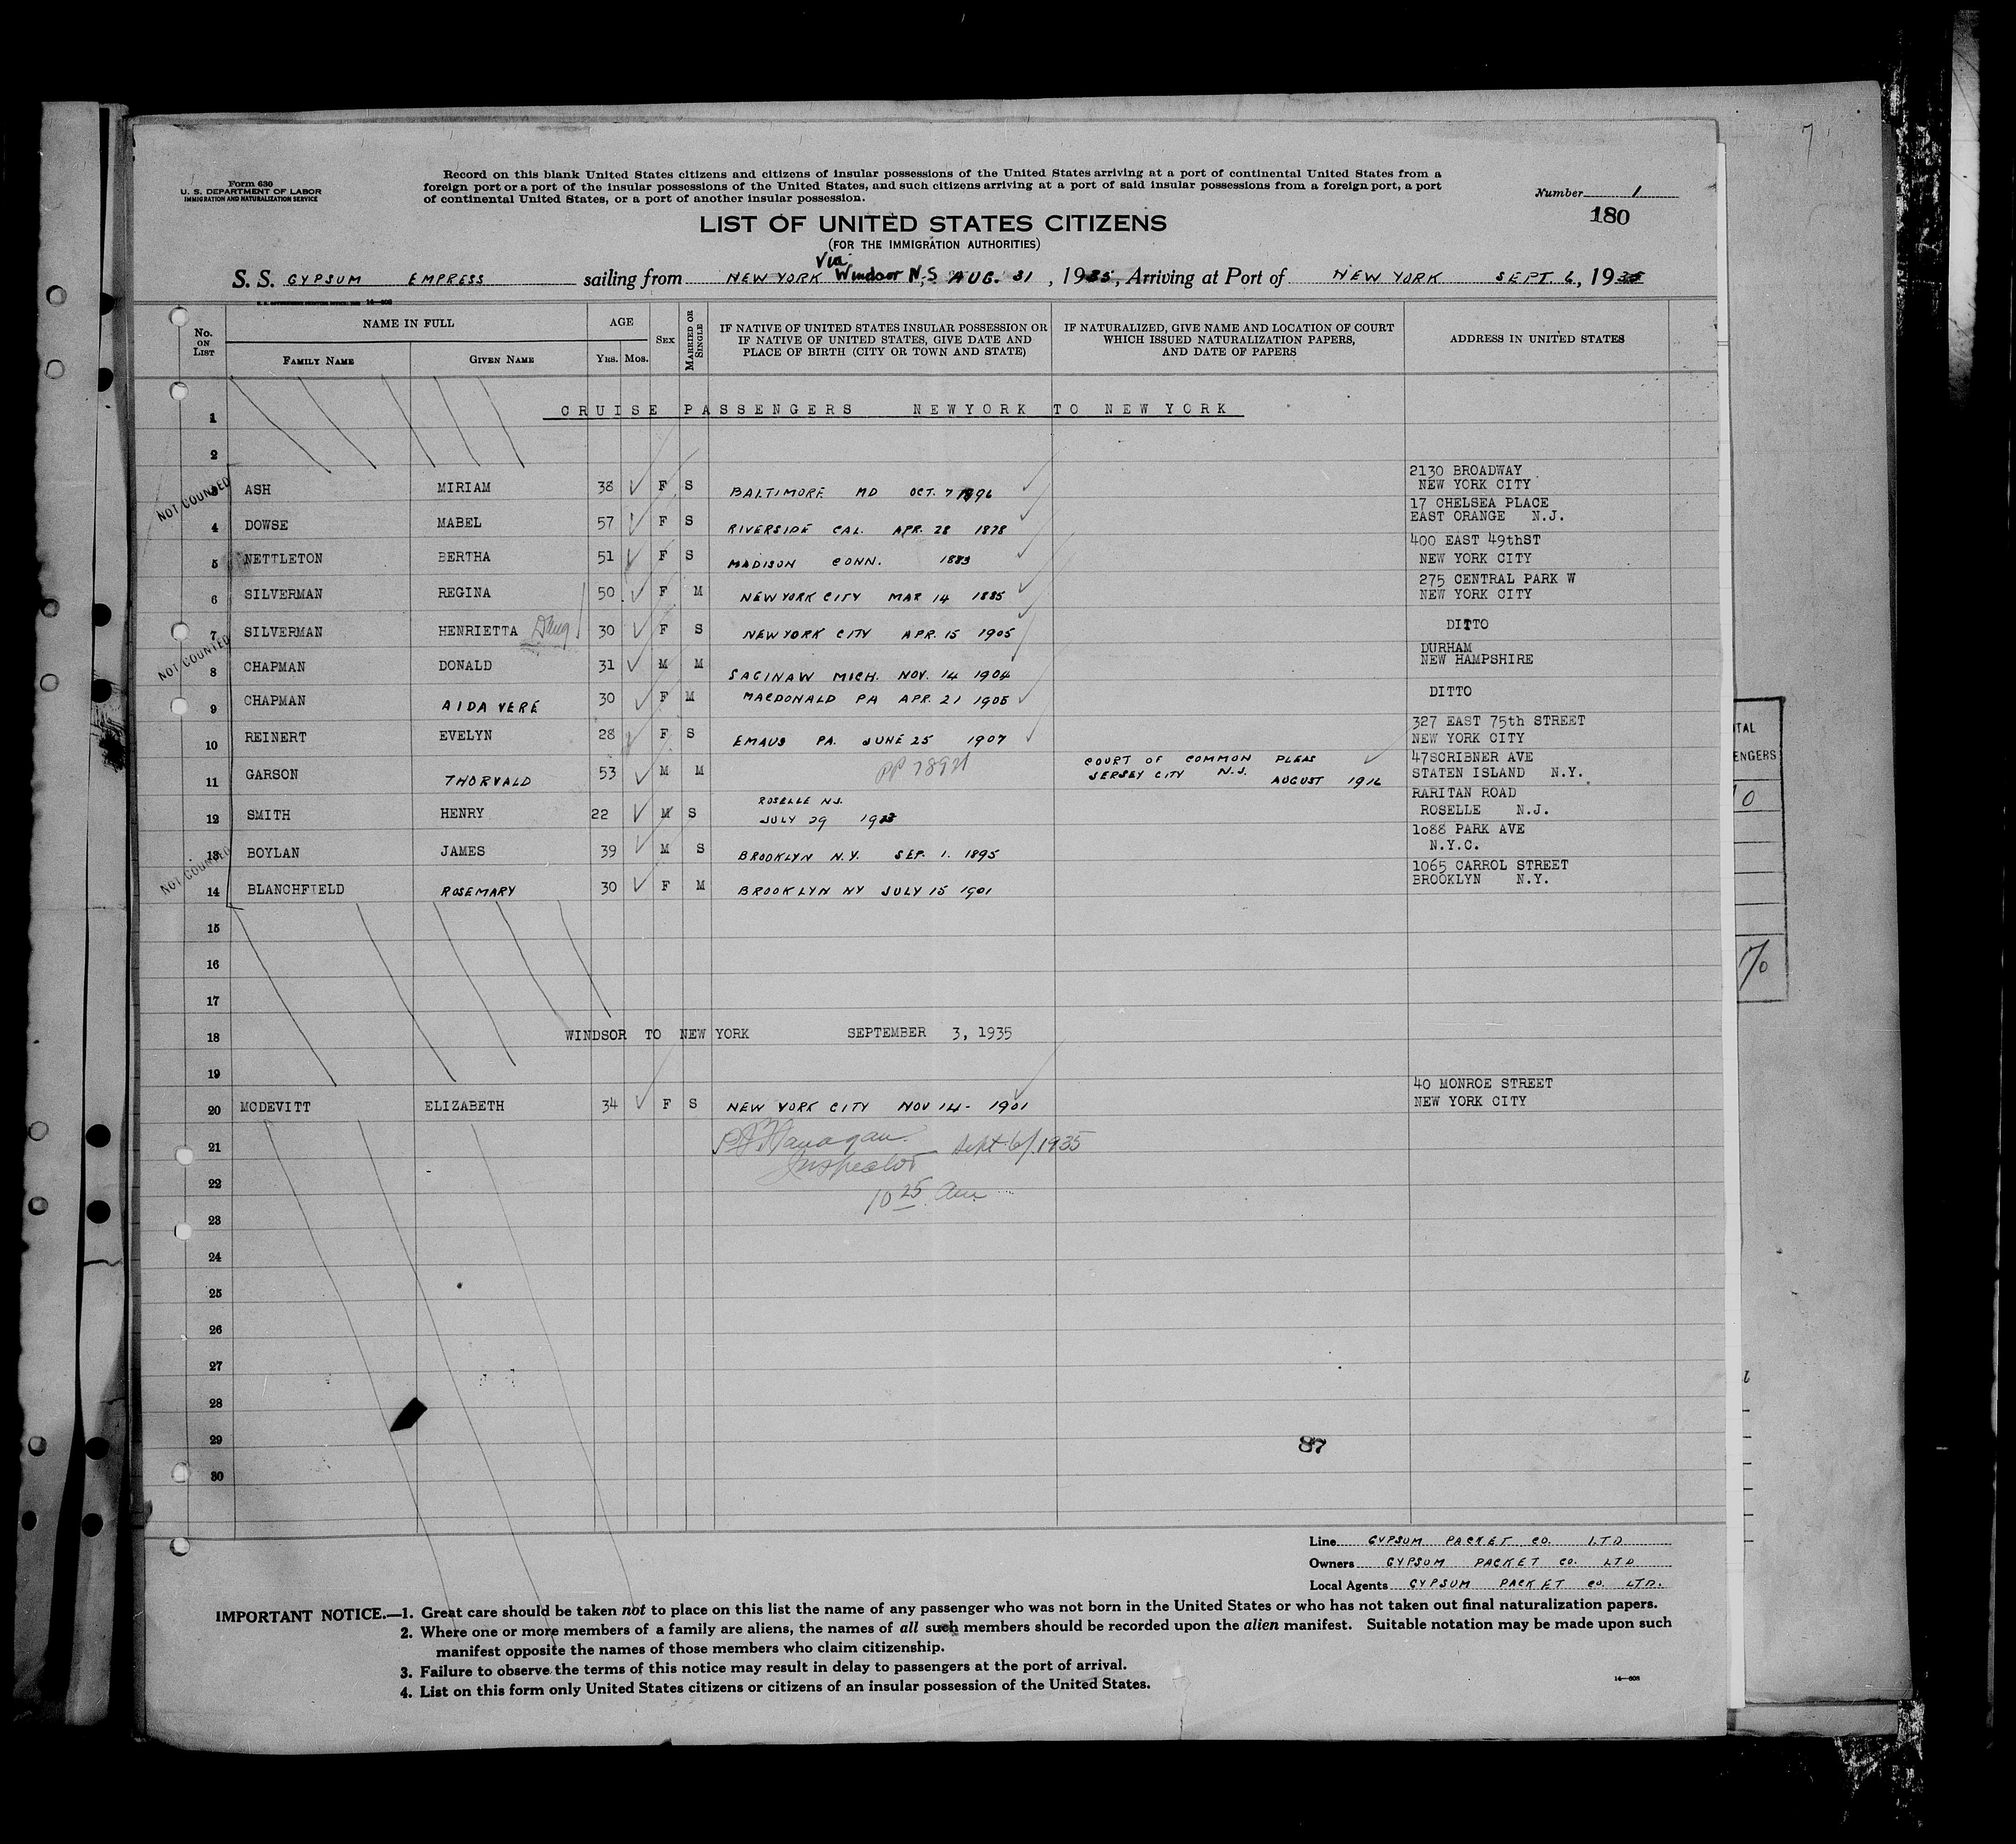 Form 630
U. S. DEPARTMENT OF LABOR
IMMIGRATION AND NATURALIZATION SERVICE
Record on this blank United States citizens and citizens of insular possessions of the United States arriving at a port of continental United States from a
foreign port or a port of the insular possessions of the United States, and such citizens arriving at a port of said insular possessions from a foreign port, a port
of continental United States, or a port of another insular possession.
Number 1
180
LIST OF UNITED STATES CITIZENS
(FOR THE IMMIGRATION AUTHORITIES)
Via
S. S. GYPSUM EMPRESS sailing from NEW YORK Windsor N.S. AUG. 31, 1935, Arriving at Port of NEW YORK SEPT. 6, 1935
No. ON LIST
NAME IN FULL
FAMILY NAME
GIVEN NAME
AGE
YRS. MOS.
SEX
MARRIED OR SINGLE
IF NATIVE OF UNITED STATES INSULAR POSSESSION OR
IF NATIVE OF UNITED STATES, GIVE DATE AND
PLACE OF BIRTH (CITY OR TOWN AND STATE)
IF NATURALIZED, GIVE NAME AND LOCATION OF COURT
WHICH ISSUED NATURALIZATION PAPERS,
AND DATE OF PAPERS
ADDRESS IN UNITED STATES
1 CRUISE PASSENGERS NEWYORK TO NEW YORK
2
NOT COUNTED
3 ASH MIRIAM 38 F S BALTIMORE MD OCT. 7 1896 2130 BROADWAY
NEW YORK CITY
4 DOWSE MABEL 57 F S RIVERSIDE CAL. APR. 28 1878 17 CHELSEA PLACE
EAST ORANGE N.J.
5 NETTLETON BERTHA 51 F S MADISON CONN. 1883 400 EAST 49thST
NEW YORK CITY
6 SILVERMAN REGINA 50 F M NEW YORK CITY MAR 14 1885 275 CENTRAL PARK W
NEW YORK CITY
7 SILVERMAN HENRIETTA Daug 30 F S NEW YORK CITY APR. 15 1905 DITTO
NOT COUNTED
8 CHAPMAN DONALD 31 M M SAGINAW MICH. NOV. 14 1904 DURHAM
NEW HAMPSHIRE
9 CHAPMAN AIDA VERE 30 F M MACDONALD PA APR. 21 1905 DITTO
10 REINERT EVELYN 28 F S EMAUS PA. JUNE 25 1907 327 EAST 75th STREET
NEW YORK CITY
11 GARSON THORVALD 53 M M COURT OF COMMON PLEAS
JERSEY CITY N.J. AUGUST 1916 47SCRIBNER AVE
STATEN ISLAND N.Y.
12 SMITH HENRY 22 M S ROSELLE N.J.
JULY 29 RARITAN ROAD
ROSELLE N.J.
13 BOYLAN JAMES 39 M S BROOKLYN N.Y. SEP. 1. 1895 1088 PARK AVE
N.Y.C.
NOT COUNTED
14 BLANCHFIELD ROSEMARY 30 F M BROOKLYN NY JULY 15 1901 1065 CARROL STREET
BROOKLYN N.Y.
15
16
17
18 WINDSOR TO NEW YORK SEPTEMBER 3, 1935
19
20 MCDEVITT ELIZABETH 34 F S NEW YORK CITY NOV 14- 1901 40 MONROE STREET
NEW YORK CITY
21 Flanagan Sept. 6/1935
Inspector
22 10 25 am
23
24
25
26
27
28
29
87
30
Line GYPSUM PACKET CO. LTD
Owners GYPSUM PACKET CO. LTD
Local Agents GYPSUM PACKET CO. LTD.
IMPORTANT NOTICE.—1. Great care should be taken not to place on this list the name of any passenger who was not born in the United States or who has not taken out final naturalization papers.
2. Where one or more members of a family are aliens, the names of all such members should be recorded upon the alien manifest. Suitable notation may be made upon such
manifest opposite the names of those members who claim citizenship.
3. Failure to observe the terms of this notice may result in delay to passengers at the port of arrival.
4. List on this form only United States citizens or citizens of an insular possession of the United States.
14—608